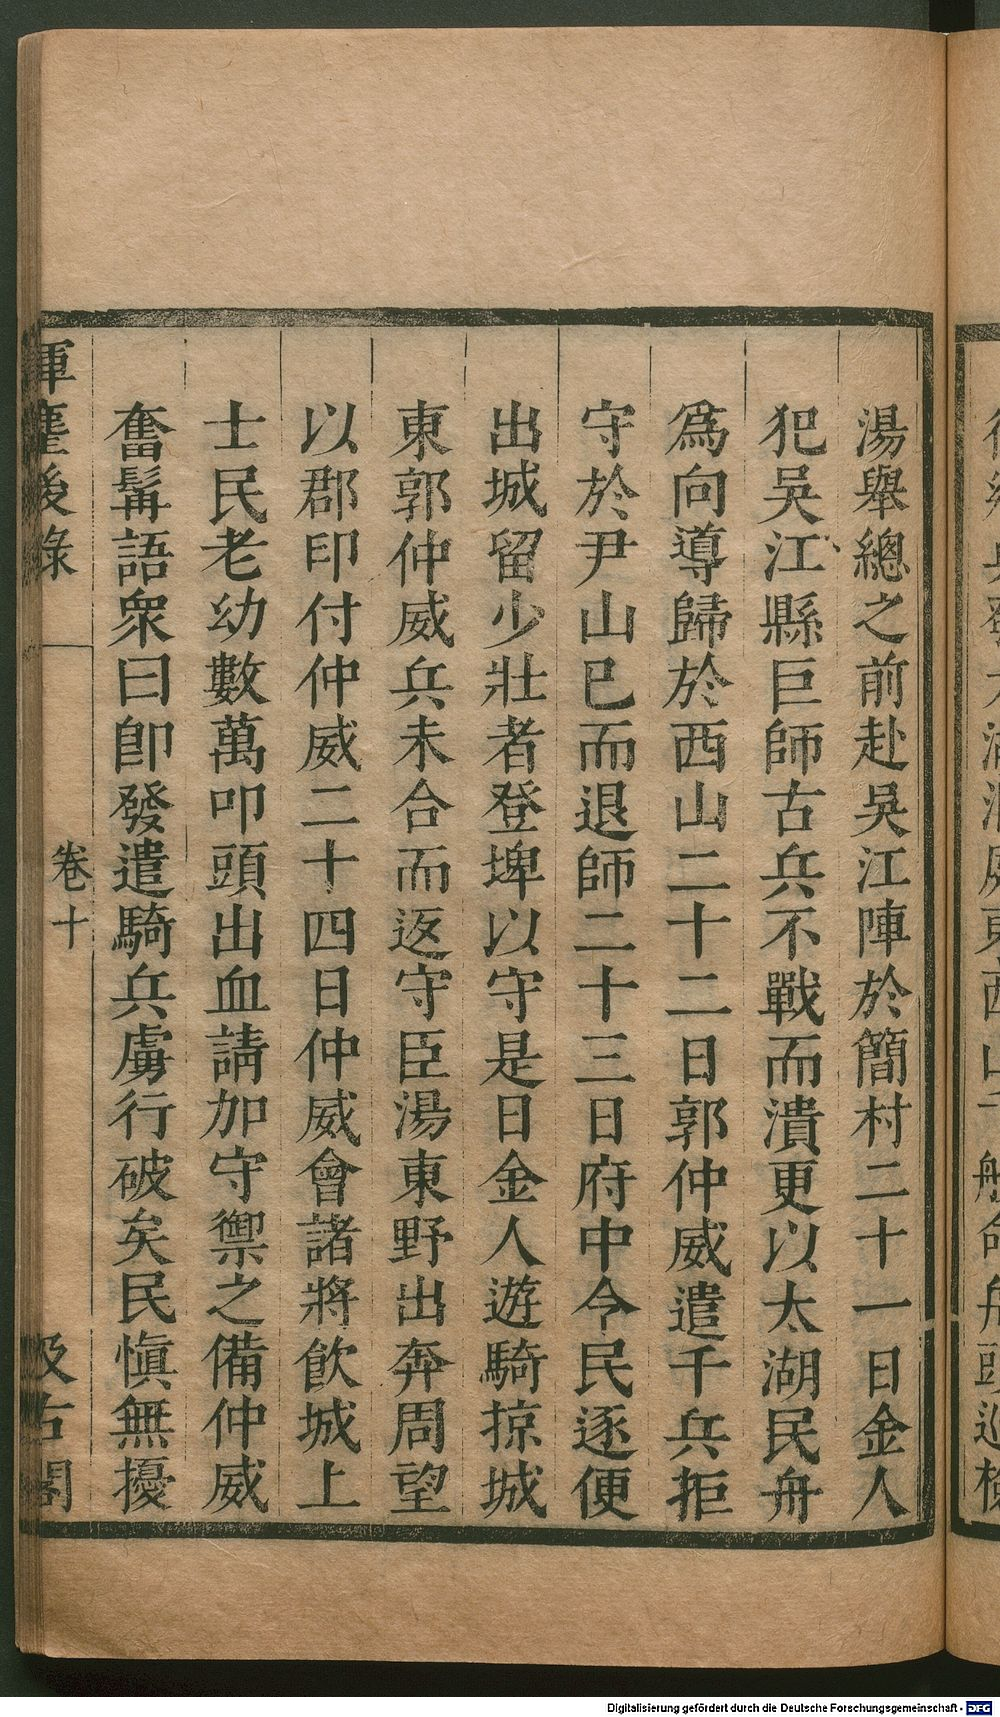 湯舉總之前赴吳江陣於簡村二十一日金人
犯吳江縣巨師古兵不戰而潰更以太湖民舟
爲向導歸於西山二十二日郭仲威遣千兵拒
守於尹山已而退師二十三日府中令民逐便
出城留少壯者登埤以守是日金人遊騎掠城
東郭仲威兵未合而返守臣湯東野出奔周望
以郡印付仲威二十四日仲威會諸將飲城上
士民老幼數萬叩頭出血請加守禦之備仲威
奮髯語衆曰卽發遣騎兵虜行破矣民愼無擾
揮麈後錄
卷十
汲古閣
Digitalisierung gefördert durch die Deutsche Forschungsgemeinschaft - DFG